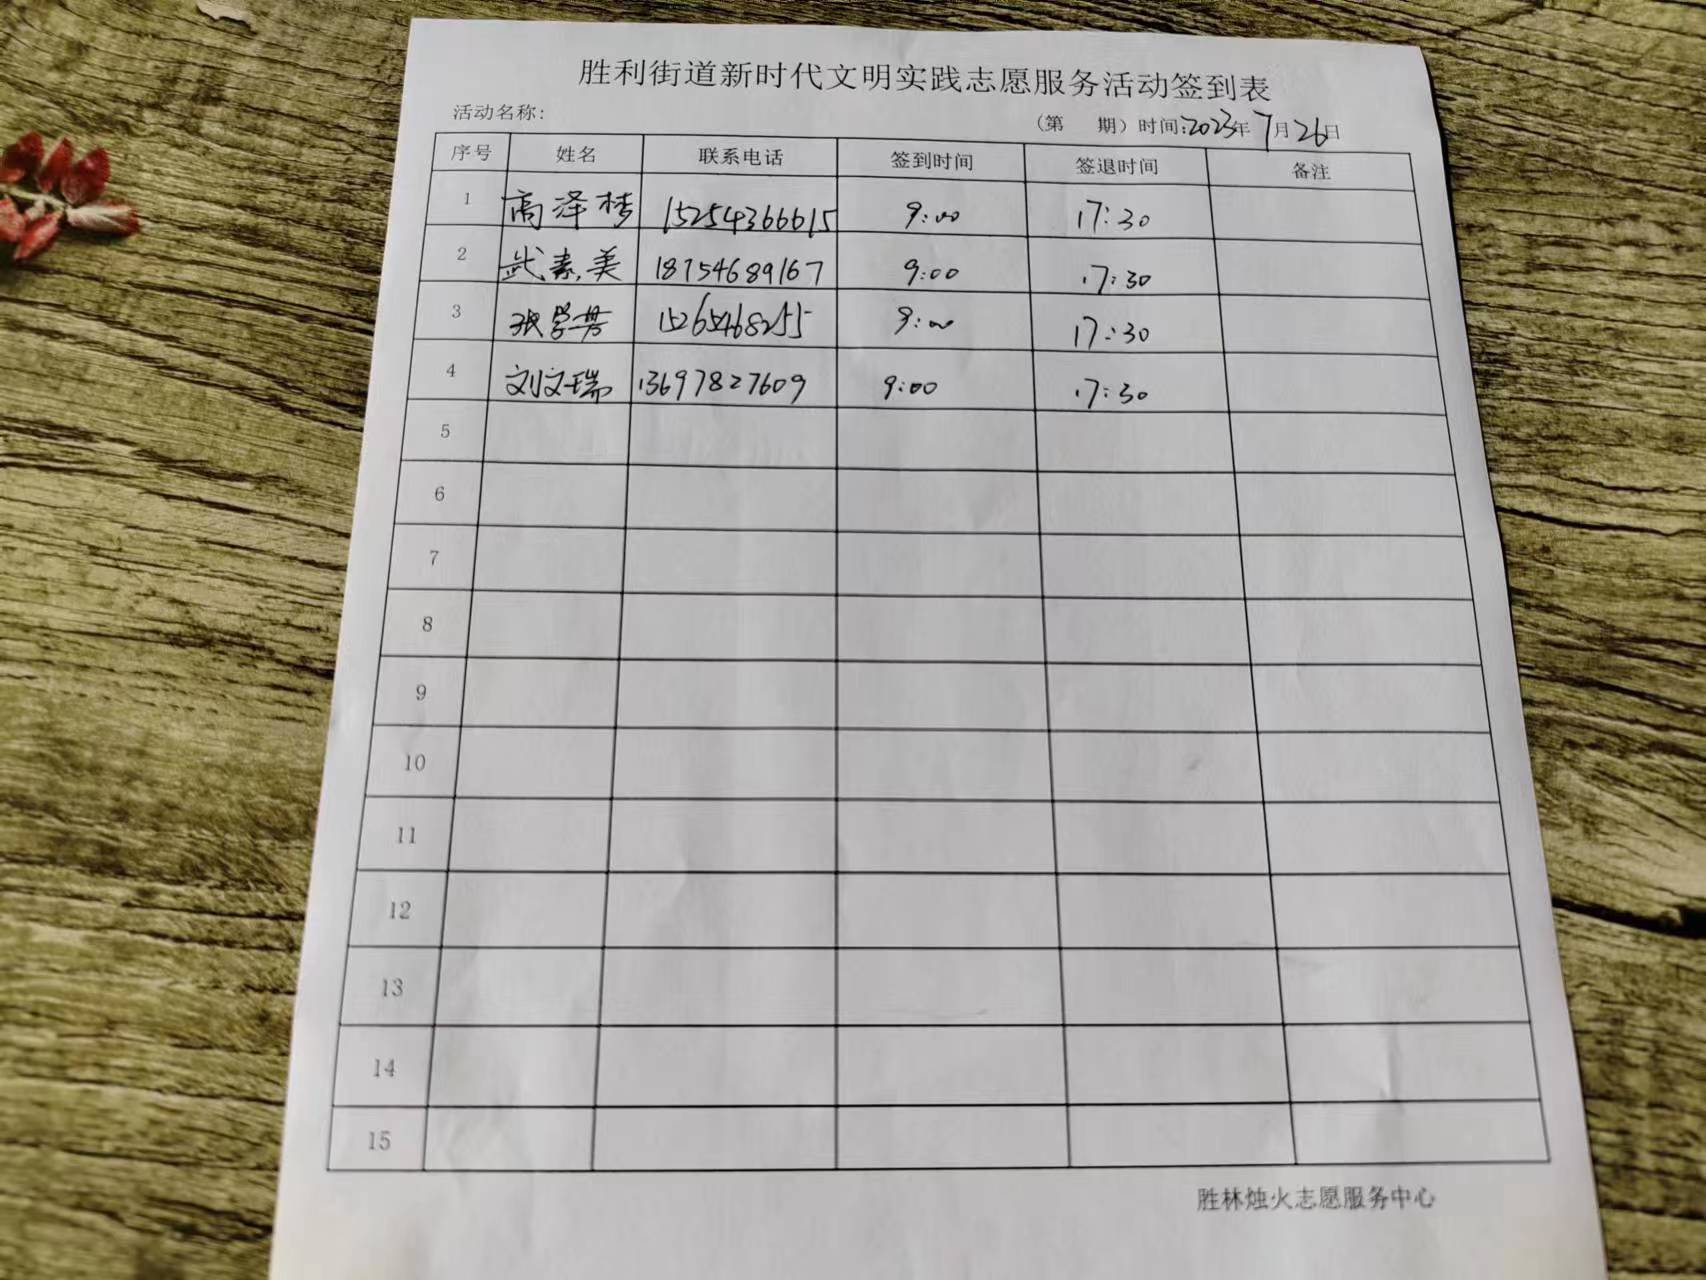 胜利街道新时代文明实践志愿服务活动签到表
活动名称:
(第 期)时间:2023年7月26日
序号 姓名 联系电话 签到时间 签退时间 备注
1 高泽梦 15254366615 9:00 17:30
2 武素美 18754689167 9:00 17:30
3 张学芳 15265468255 9:00 17:30
4 刘文瑞 13697827609 9:00 17:30
5
6
7
8
9
10
11
12
13
14
15
胜林烛火志愿服务中心